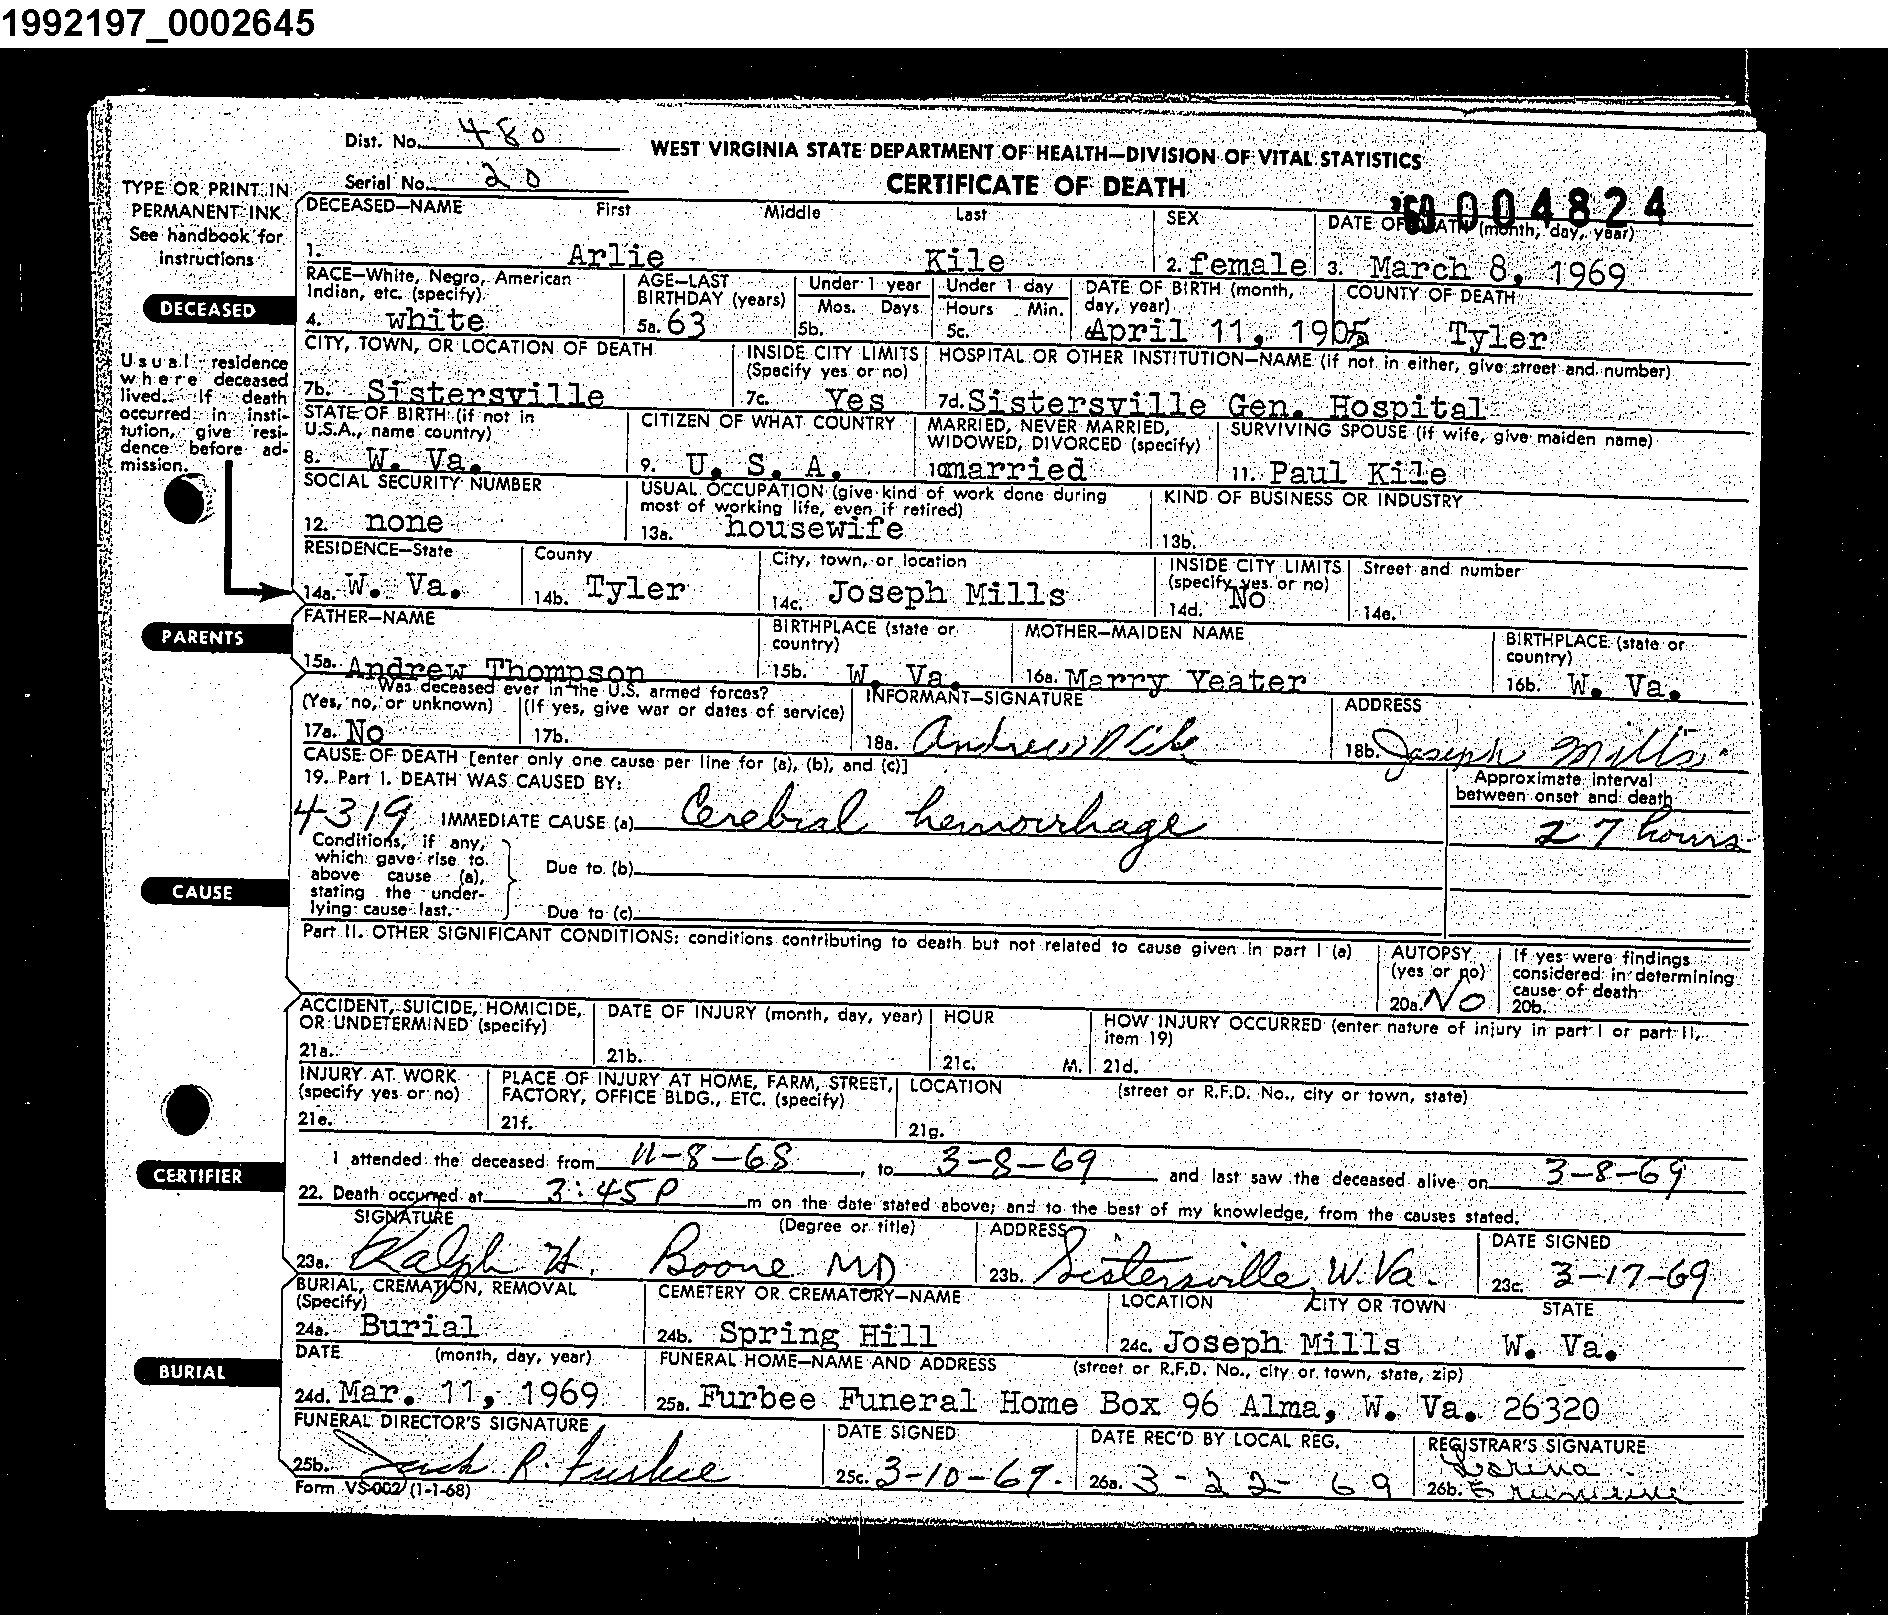 1992197_0002645
Dist. No. 480
WEST VIRGINIA STATE DEPARTMENT OF HEALTH—DIVISION OF VITAL STATISTICS
Serial No. 20
CERTIFICATE OF DEATH
'69 004824
TYPE OR PRINT IN
PERMANENT INK
See handbook for
instructions
DECEASED—NAME First Middle Last
1. Arlie Kile
SEX
2. female
DATE OF DEATH (month, day, year)
3. March 8, 1969
DECEASED
RACE—White, Negro, American
Indian, etc. (specify)
4. white
AGE—LAST
BIRTHDAY (years)
5a. 63
Under 1 year
Mos. Days
5b.
Under 1 day
Hours Min.
5c.
DATE OF BIRTH (month,
day, year)
April 11, 1905
COUNTY OF DEATH
Tyler
Usual residence
where deceased
lived. If death
occurred in insti-
tution, give resi-
dence before ad-
mission.
CITY, TOWN, OR LOCATION OF DEATH
7b. Sistersville
INSIDE CITY LIMITS
(Specify yes or no)
7c. Yes
HOSPITAL OR OTHER INSTITUTION—NAME (if not in either, give street and number)
7d. Sistersville Gen. Hospital
STATE OF BIRTH (if not in
U.S.A., name country)
8. W. Va.
CITIZEN OF WHAT COUNTRY
9. U. S. A.
MARRIED, NEVER MARRIED,
WIDOWED, DIVORCED (specify)
10. married
SURVIVING SPOUSE (if wife, give maiden name)
11. Paul Kile
SOCIAL SECURITY NUMBER
12. none
USUAL OCCUPATION (give kind of work done during
most of working life, even if retired)
13a. housewife
KIND OF BUSINESS OR INDUSTRY
13b.
RESIDENCE—State
14a. W. Va.
County
14b. Tyler
City, town, or location
14c. Joseph Mills
INSIDE CITY LIMITS
(specify yes or no)
14d. No
Street and number
14e.
PARENTS
FATHER—NAME
15a. Andrew Thompson
BIRTHPLACE (state or
country)
15b. W. Va.
MOTHER—MAIDEN NAME
16a. Marry Yeater
BIRTHPLACE (state or
country)
16b. W. Va.
Was deceased ever in the U.S. armed forces?
(Yes, no, or unknown) (If yes, give war or dates of service)
17a. No 17b.
INFORMANT—SIGNATURE
18a. Andrew Kile
ADDRESS
18b. Joseph Mills
CAUSE OF DEATH [enter only one cause per line for (a), (b), and (c)]
19. Part I. DEATH WAS CAUSED BY:
Approximate interval
between onset and death
4319 IMMEDIATE CAUSE (a) Cerebral hemorrhage 27 hours
Conditions, if any,
which gave rise to
above cause (a),
stating the under-
lying cause last.
Due to (b)
Due to (c)
CAUSE
Part II. OTHER SIGNIFICANT CONDITIONS: conditions contributing to death but not related to cause given in part I (a)
AUTOPSY
(yes or no)
20a. No
If yes were findings
considered in determining
cause of death
20b.
ACCIDENT, SUICIDE, HOMICIDE,
OR UNDETERMINED (specify)
21a.
DATE OF INJURY (month, day, year)
21b.
HOUR
21c. M.
HOW INJURY OCCURRED (enter nature of injury in part I or part II,
item 19)
21d.
INJURY AT WORK
(specify yes or no)
21e.
PLACE OF INJURY AT HOME, FARM, STREET,
FACTORY, OFFICE BLDG., ETC. (specify)
21f.
LOCATION (street or R.F.D. No., city or town, state)
21g.
CERTIFIER
I attended the deceased from 11-8-68, to 3-8-69 and last saw the deceased alive on 3-8-69
22. Death occurred at 3:45 P m on the date stated above; and to the best of my knowledge, from the causes stated.
SIGNATURE (Degree or title)
23a. Ralph H. Boone MD
ADDRESS
23b. Sistersville W. Va.
DATE SIGNED
23c. 3-17-69
BURIAL, CREMATION, REMOVAL
(Specify)
24a. Burial
CEMETERY OR CREMATORY—NAME
24b. Spring Hill
LOCATION CITY OR TOWN STATE
24c. Joseph Mills W. Va.
BURIAL
DATE (month, day, year)
24d. Mar. 11, 1969
FUNERAL HOME—NAME AND ADDRESS (street or R.F.D. No., city or town, state, zip)
25a. Furbee Funeral Home Box 96 Alma, W. Va. 26320
FUNERAL DIRECTOR'S SIGNATURE
25b. Jack R. Furbee
DATE SIGNED
25c. 3-10-69.
DATE REC'D BY LOCAL REG.
26a. 3-22-69
REGISTRAR'S SIGNATURE
26b. Lorena
Form VS-002 (1-1-68)